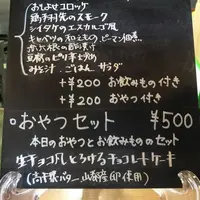 おしよせコロッケ
鶏手羽先のスモーク
シイタケのエスカルゴ風
キャベツの和えもの ピーマン
豆腐のピリ辛
みそ汁 ごはん サラダ
+¥200 お飲みもの付き
+¥200 おやつ付き
おやつセット ¥500
本日のおやつとお飲みもののセット
生チョコ とろけるチョコレートケーキ
バター 卵使用)